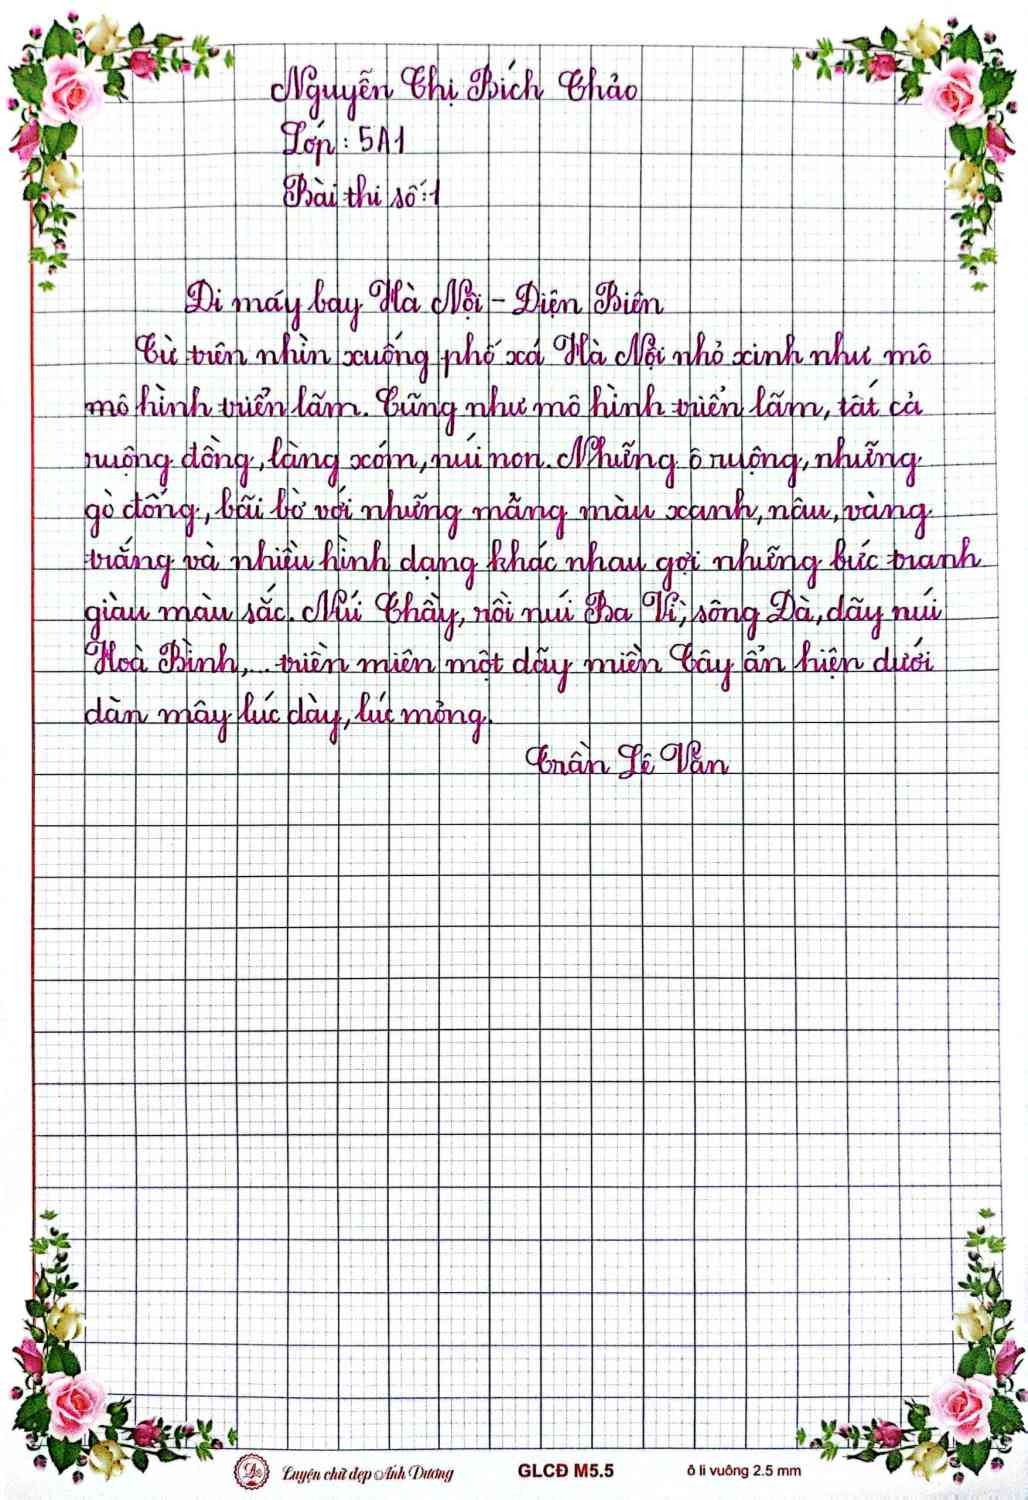 Nguyễn Thị Bích Thảo
Lớp : 5A1
Bài thi số : 1
Đi máy bay Hà Nội - Điện Biên
Từ trên nhìn xuống phố xá Hà Nội nhỏ xinh như mô
mô hình triển lãm. Cũng như mô hình triển lãm, tất cả
ruộng đồng, làng xóm, núi non. Những ô ruộng, những
gò đống, bãi bờ với những mảng màu xanh, nâu, vàng
trắng và nhiều hình dạng khác nhau gợi những bức tranh
giàu màu sắc. Núi Thầy, rồi núi Ba Vì, sông Đà, dãy núi
Hoà Bình,... triền miên một dãy miền Tây ẩn hiện dưới
dàn mây lúc dày, lúc mỏng.
Trần Lê Văn
Luyện chữ đẹp Ánh Dương
GLCĐ M5.5
ô li vuông 2.5 mm